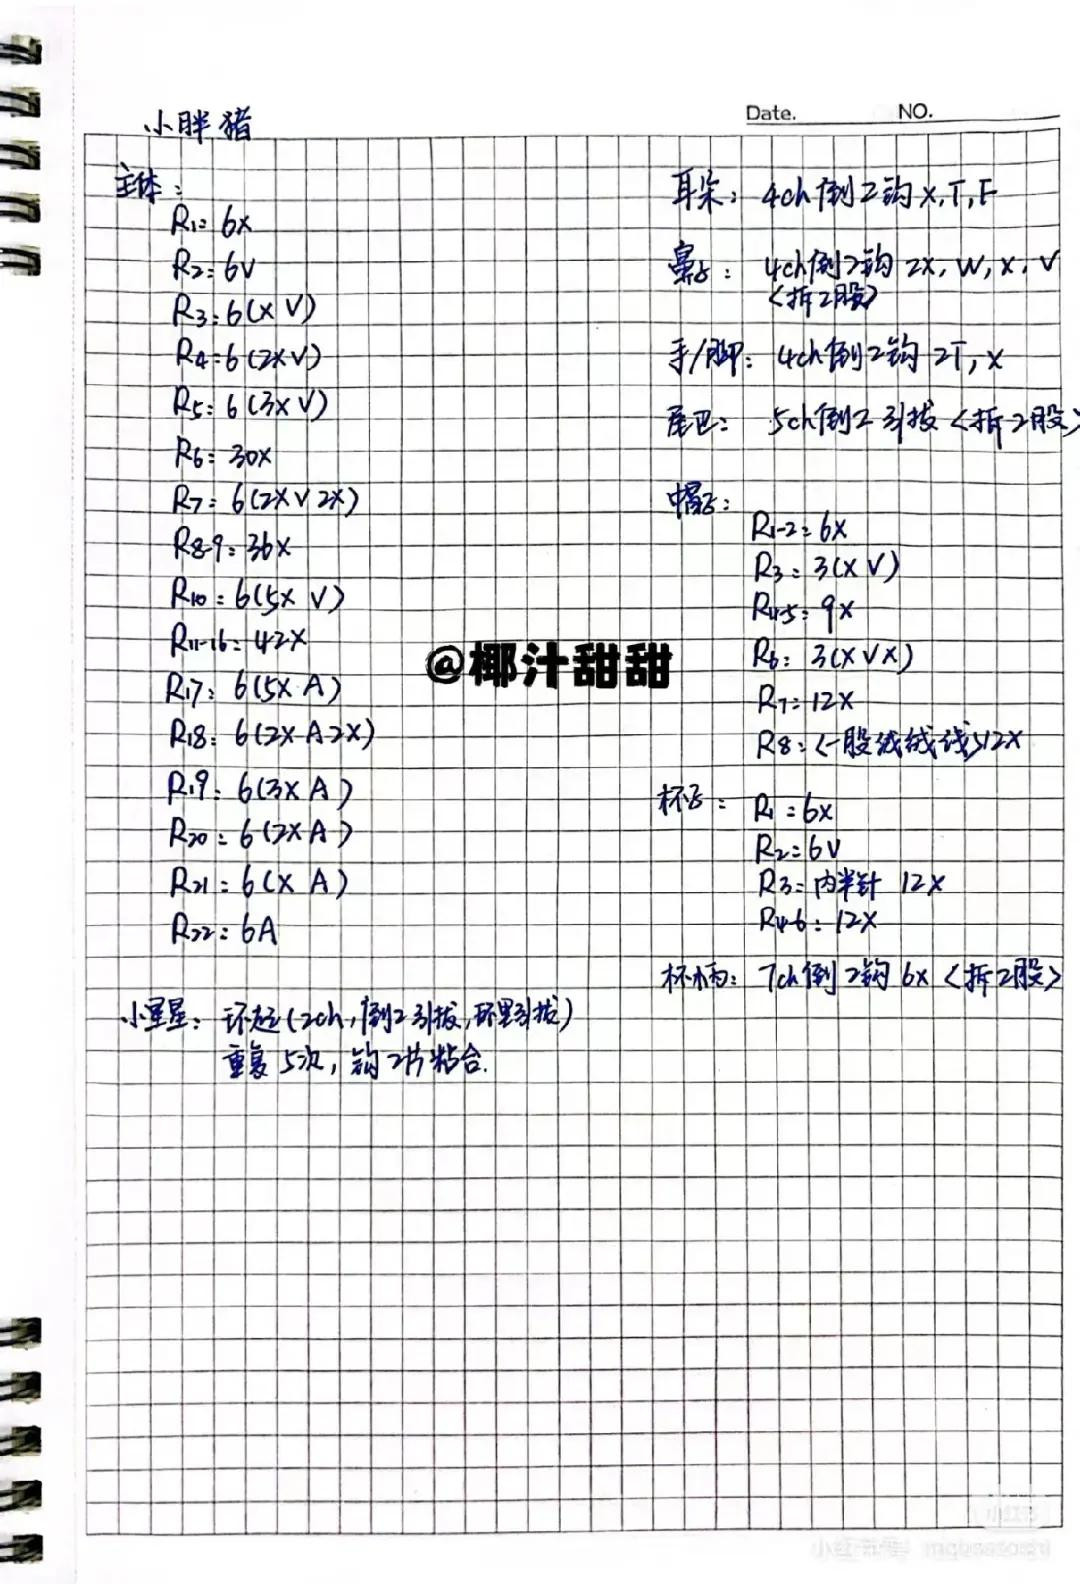 Date.
NO.
小胖猪
主体：
R1: 6X
R2: 6V
R3: 6(X V)
R4: 6(2X V)
R5: 6(3X V)
R6: 30X
R7: 6(2X V 2X)
R8-9: 36X
R10: 6(5X V)
R11-16: 42X
R17: 6(5X A)
R18: 6(2X A 2X)
R19: 6(3X A)
R20: 6(2X A)
R21: 6(X A)
R22: 6A
小星星：环起(2ch,倒2引拔,环里引拔)
重复5次，钩2片粘合.
耳朵：4ch倒2钩X,T,F
鼻子：4ch倒2钩 2X, W, X, V
<拆2股>
手/脚：4ch倒2钩 2T, X
尾巴：5ch倒2引拔<拆2股>
帽子：
R1-2: 6X
R3: 3(X V)
R4-5: 9X
R6: 3(X V X)
R7: 12X
R8: <一股绒绒线>12X
杯子：R1: 6X
R2: 6V
R3: 内半针 12X
R4-6: 12X
杯柄：7ch倒2钩6X<拆2股>
@椰汁甜甜
小红书
小红书号：